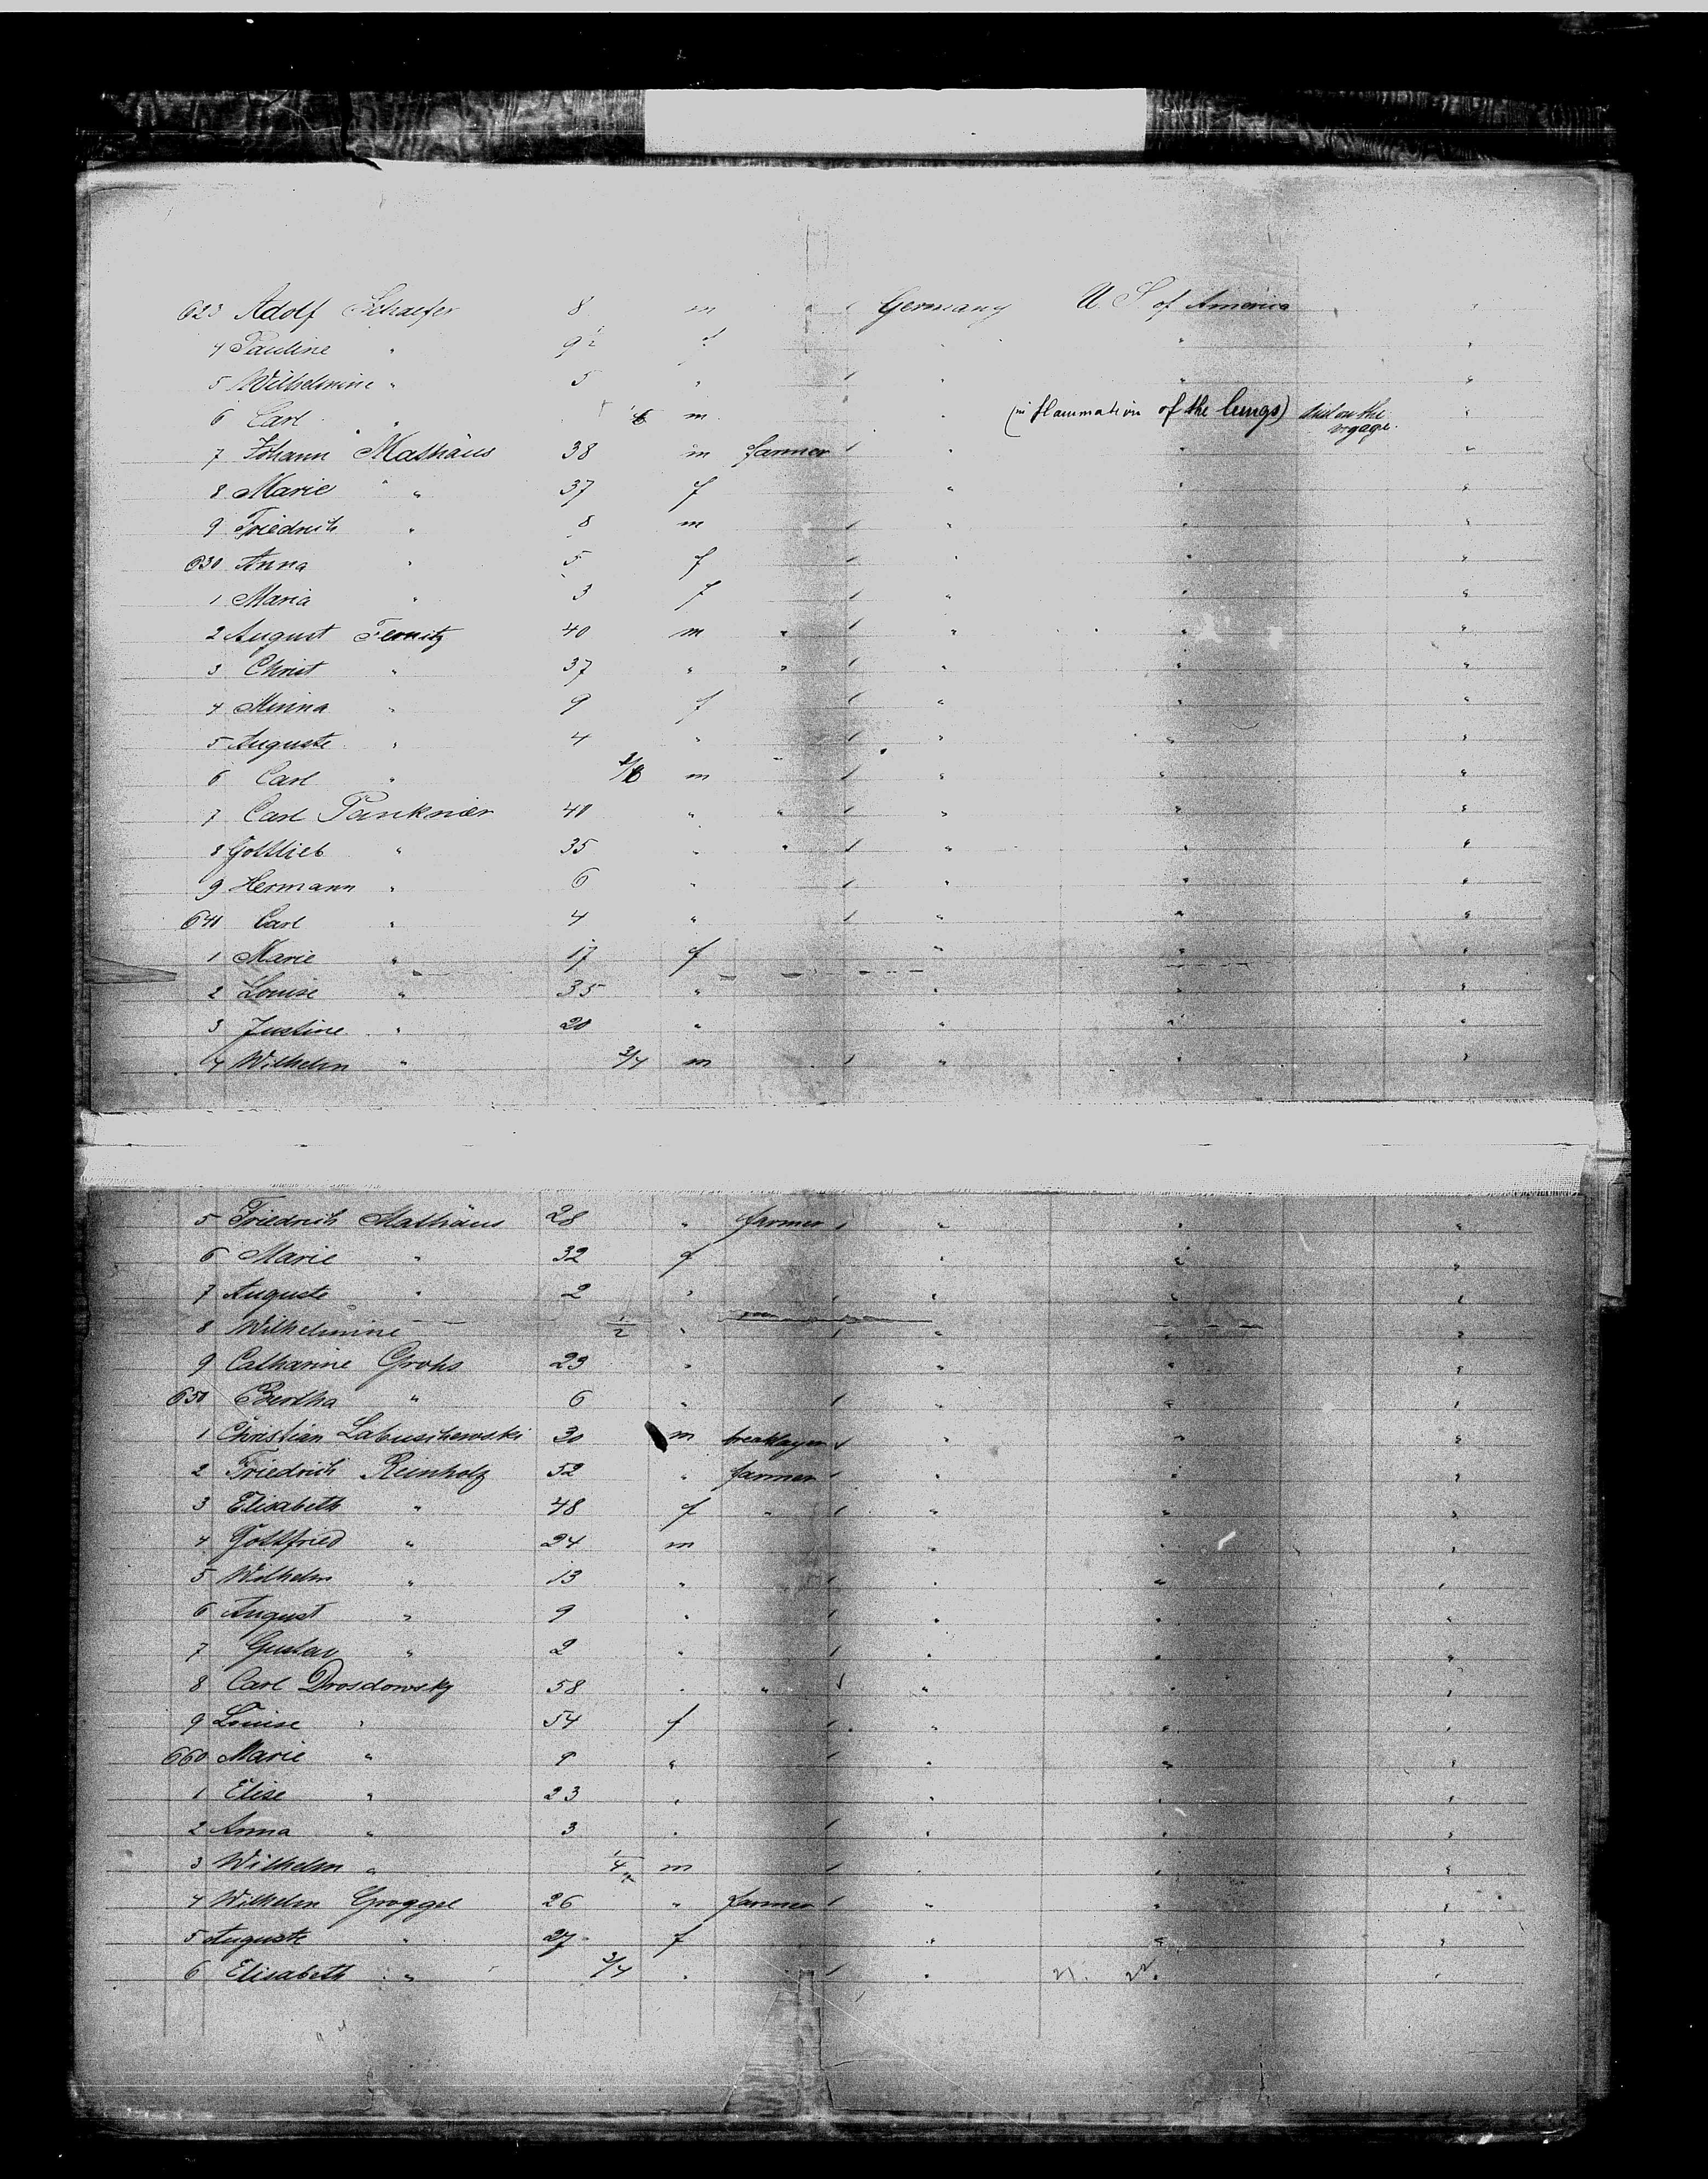 623 Adolf Schaefer 8 m " Germany U S of America "
4 Pauline " 9 f " " "
5 Wilhelmine " 5 " " " "
6 Carl " m " (inflammation of the lungs) died on the voyage. "
7 Johann Mathäus 38 m farmer " " "
8 Marie " 37 f " " "
9 Friedrich " 8 m " " "
630 Anna " 5 f " " "
1 Maria " 3 f " " "
2 August 40 m " " " "
3 Christ " 37 " " " " "
4 Minna " 9 f " " "
5 Auguste " 4 " " " "
6 Carl " m " " "
7 Carl Panknier 40 " " " " "
8 Gottlieb " 35 " " " " "
9 Hermann " 6 " " " "
640 Carl " 4 " " " "
1 Marie " 17 f " " "
2 Louise " 35 " " " "
3 Justine " 20 " " " "
4 Wilhelm " 3/4 m " " "
5 Friedrich Mathäus 28 " farmer " " "
6 Marie " 32 f " " "
7 Auguste " 2 " " " "
8 Wilhelmine 1/2 " " " "
9 Catharine Grohs 23 " " " "
650 Bertha " 6 " " " "
1 Christian Labuschewski 30 m " " "
2 Friedrich Reinholz 52 " farmer " " "
3 Elisabeth " 48 f " " " "
4 Gottfried " 24 m " " "
5 Wilhelm " 13 " " " "
6 August " 9 " " " "
7 Gustav " 2 " " " "
8 Carl Drosdowsky 58 " " " " "
9 Louise " 54 f " " "
660 Marie " 9 " " " "
1 Elise " 23 " " " "
2 Anna " 3 " " " "
3 Wilhelm " 1/4 m " " "
4 Wilhelm Groggel 26 " farmer " " "
5 Auguste " 27 f " " "
6 Elisabeth " 3/4 " " " "